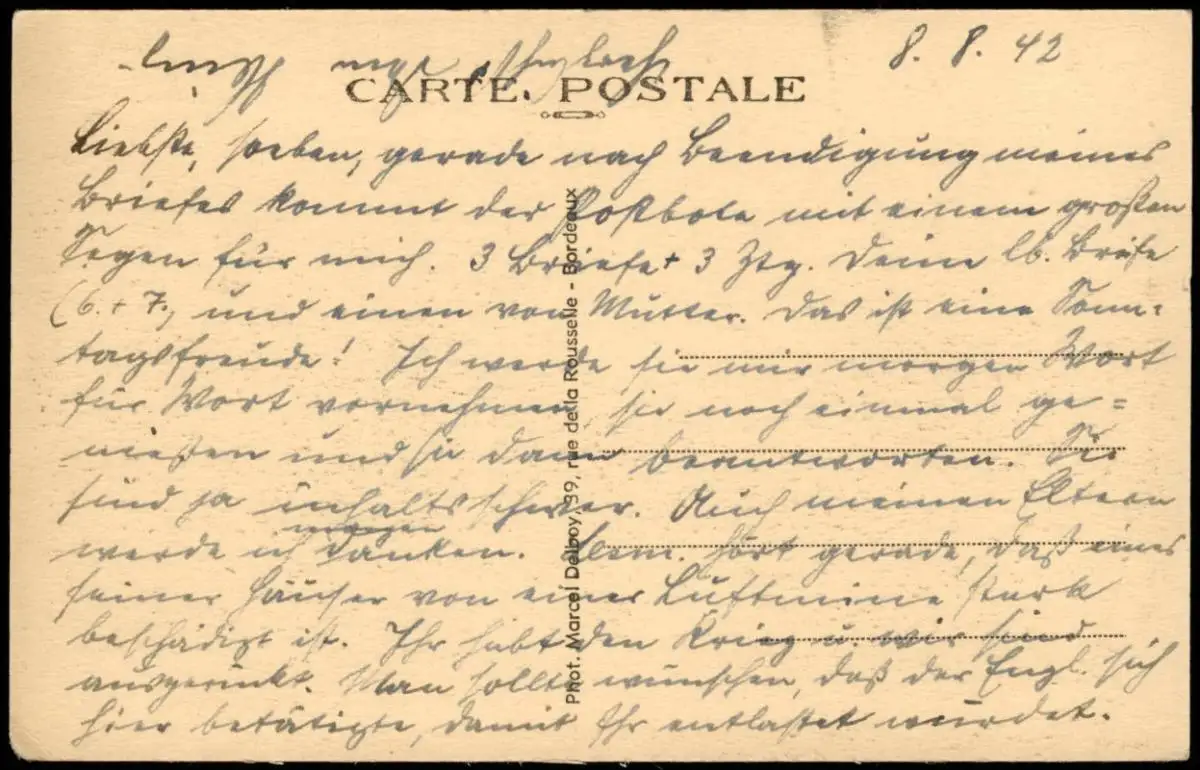 8. 8. 42
CARTE POSTALE
Liebste, soeben, gerade nach Beendigung meines
Briefes kommt der Postbote mit einem großen
Segen für mich. 3 Briefe + 3 Ztg. Deine lb. Briefe
(6. + 7.) und einen von Mutter. Das ist eine Sonn-
tagsfreude! Ich werde sie mir morgen Wort
für Wort vornehmen, sie noch einmal ge-
nießen und sie dann beantworten. Sie
sind ja inhaltsschwer. Auch meinen Eltern
morgen
werde ich danken. hört gerade, daß eines
seiner Häuser von einer Luftmine stark
beschädigt ist. Ihr habt den Krieg u. wir sind
ausgerückt. Man sollte wünschen, daß der Engl. sich
hier betätigte, damit Ihr entlastet würdet.
Phot. Marcel Delboy, 39, rue de la Rousselle - Bordeaux